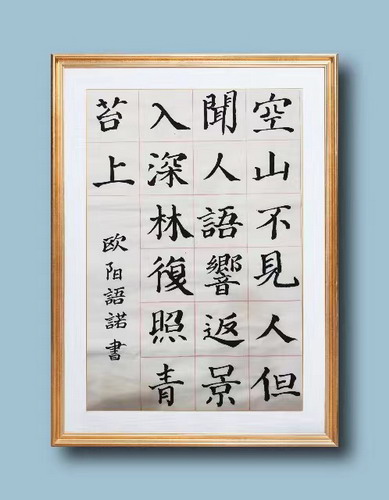 空山不見人但
聞人語響返景
入深林復照青
苔上
欧阳語諾書